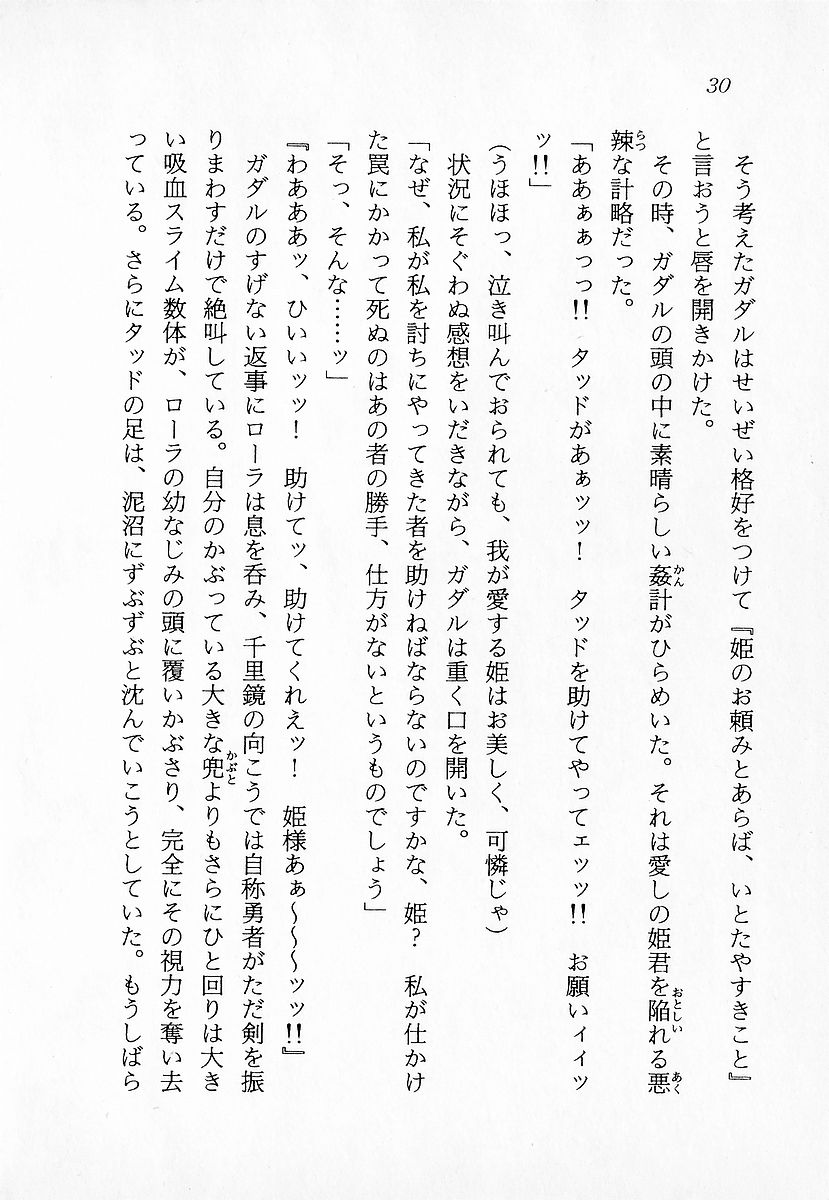 30
そう考えたガダルはせいぜい格好をつけて『姫のお頼みとあらば、いとたやすきこと』
と言おうと唇を開きかけた。
その時、ガダルの頭の中に素晴らしい姦計がひらめいた。それは愛しの姫君を陥れる悪
辣な計略だった。
「ああぁぁっっ!! タッドがあぁッッ！　タッドを助けてやってェッッ!!　お願いィィッ
ッ!!」
（うほほっ、泣き叫んでおられても、我が愛する姫はお美しく、可憐じゃ）
状況にそぐわぬ感想をいだきながら、ガダルは重く口を開いた。
「なぜ、私が私を討ちにやってきた者を助けねばならないのですかな、姫？　私が仕かけ
た罠にかかって死ぬのはあの者の勝手、仕方がないというものでしょう」
「そっ、そんな……ッ」
『わあああッ、ひいいッッ！　助けてッ、助けてくれえッ！　姫様あぁ〜〜〜ッッ!!』
ガダルのすげない返事にローラは息を呑み、千里鏡の向こうでは自称勇者がただ剣を振
りまわすだけで絶叫している。自分のかぶっている大きな兜よりもさらにひと回りは大き
い吸血スライム数体が、ローラの幼なじみの頭に覆いかぶさり、完全にその視力を奪い去
っている。さらにタッドの足は、泥沼にずぶずぶと沈んでいこうとしていた。もうしばら